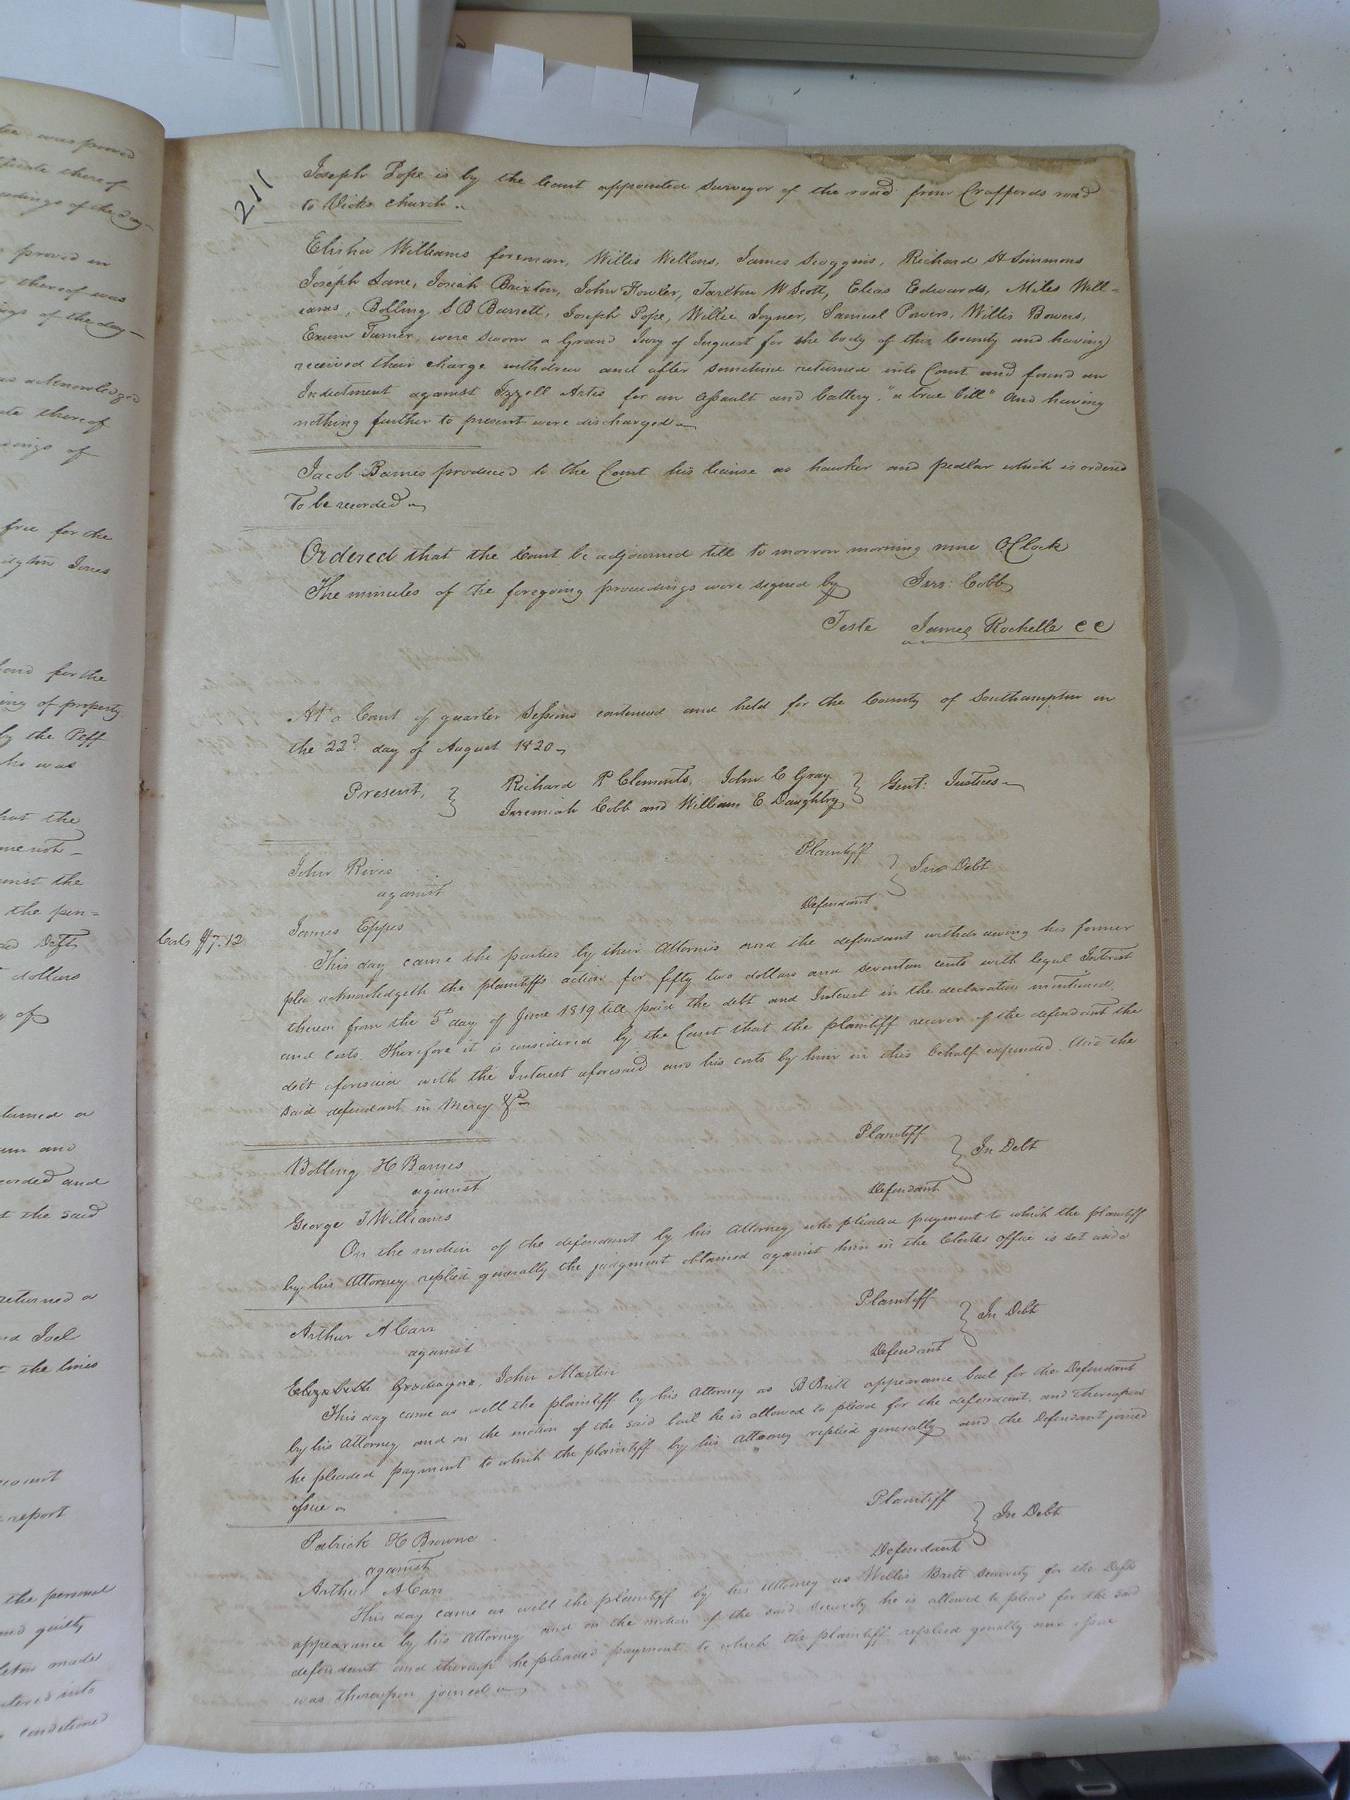 211
Joseph Pope is by the Court appointed Surveyor of the road from Craffords road
to Vicks church.
Elisha Williams foreman, Willis Wellons, James Scoggins, Richard H Simmons
Joseph Lane, Josiah Brixton, John Fowler, Tarlton W Scott, Elias Edwards, Miles Will-
iams, Bolling S B Barrett, Joseph Pope, Willie Joyner, Samuel Powers, Willis Bowers,
Exum Turner, were sworn a Grand Jury of Inquest for the body of this County and having
received their charge withdrew and after sometime returned into Court and found an
Indictment against Izzell Artis for an assault and battery. "a true bill" And having
nothing further to present were discharged
Jacob Barnes produced to the Court his license as hawker and pedlar which is ordered
To be recorded
Ordered that the Court be adjourned till to morrow morning nine OClock
The minutes of the foregoing proceedings were signed by Jere: Cobb
Teste James Rochelle CC
At a Court of quarter Sessions continued and held for the County of Southampton on
the 22d day of August 1820
Present, Richard P Clements, John C Gray
Jeremiah Cobb and William E Daughtry Gent: Justices
John Rives Plaintiff
against In Debt
James Eppes Defendant
Costs $7.12
This day came the parties by their Attornies and the defendant withdrawing his former
plea acknowledgeth the plaintiffs action for fifty two dollars and seventeen cents with legal Interest
thereon from the 5th day of June 1819 till paid the debt and Interest in the declaration mentioned,
and costs. Therefore it is considered by the Court that the plaintiff recover of the defendant the
debt aforesaid with the Interest aforesaid and his costs by him in this behalf expended. And the
said defendant in Mercy &c
Bolling H Barnes Plaintiff
against In Debt
George J Williams Defendant
On the motion of the defendant by his Attorney who pleaded payment to which the plaintiff
by his Attorney replied generally the judgment obtained against him in the Clerks office is set aside
Arthur A Carr Plaintiff
against In Debt
Elizabeth John Martin Defendant
This day came as well the plaintiff by his Attorney as B Britt appearance bail for the Defendant
by his Attorney and on the motion of the said bail he is allowed to plead for the defendant, and thereupon
he pleaded payment to which the plaintiff by his Attorney replied generally and the Defendant joined
issue
Patrick H Browne Plaintiff
against In Debt
Arthur A Carr Defendant
This day came as well the plaintiff by his Attorney as Willis Britt security for the Defts
appearance by his Attorney and on the motion of the said security he is allowed to plead for the said
defendant and thereup he pleaded payment to which the plaintiff replied genally and issue
was thereupon joined